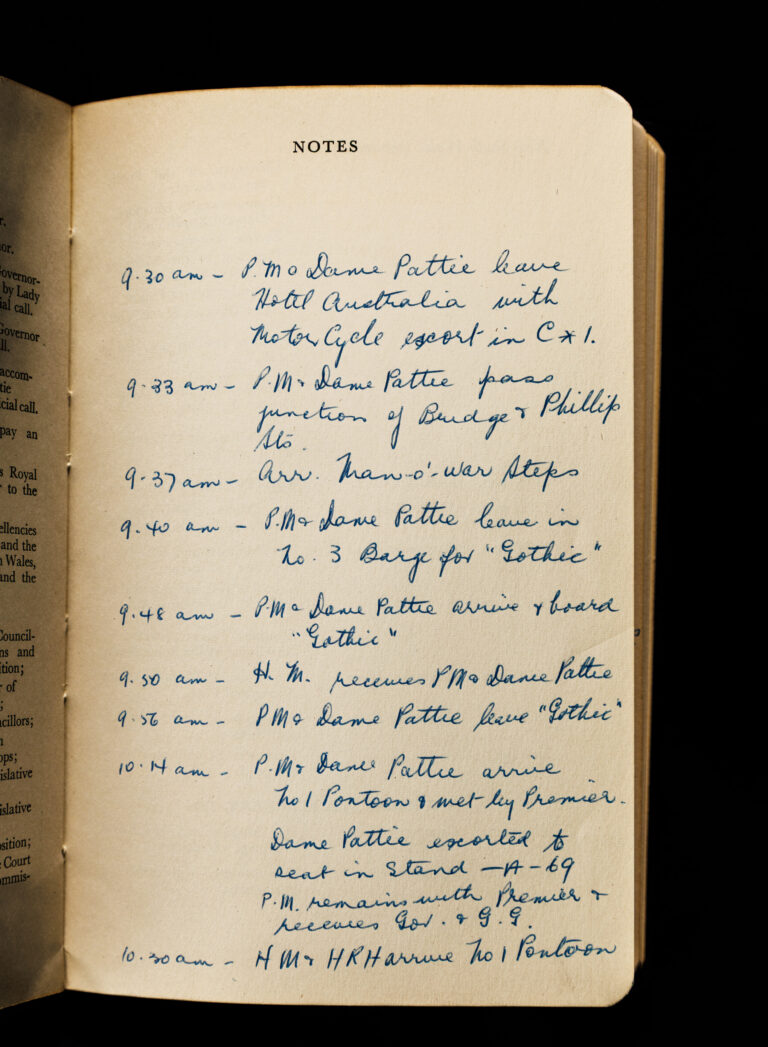 r.
or.
overnor-
by Lady
ial call.
Governor
ll.
accom-
tie
cial call.
pay an
s Royal
to the
ellencies
and the
Wales,
and the
Council-
ns and
ition;
r of
;
cillors;
n
ops;
islative
islative
sition;
Court
mmis-
NOTES
9.30 am - P.M & Dame Pattie leave
Hotel Australia with
Motor Cycle escort in C*1.
9.33 am - P.M & Dame Pattie pass
junction of Bridge & Phillip
Sts.
9.37 am - Arr. Man-o'-war Steps
9.40 am - P.M & Dame Pattie leave in
No. 3 Barge for "Gothic"
9.48 am - P.M & Dame Pattie arrive & board
"Gothic"
9.50 am - H.M. receives PM & Dame Pattie
9.56 am - PM & Dame Pattie leave "Gothic"
10.14 am - P.M & Dame Pattie arrive
No 1 Pontoon & met by Premier.
Dame Pattie escorted to
seat in Stand - A - 69
P.M. remains with Premier &
receives Gov. & G.G.
10.30 am - HM & HRH arrive No 1 Pontoon